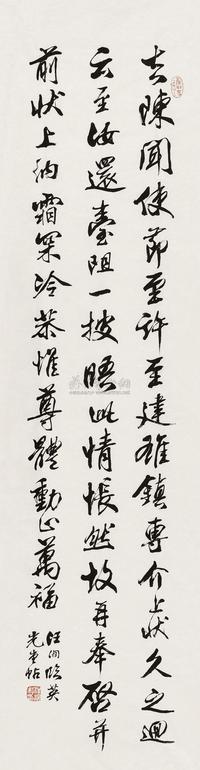 去陳聞使節至許至建雄鎮專介上狀久之迴
云至汝還臺阻一披晤此情悵然故再奉啓并
前狀上納霜深冷恭惟尊體動止萬福
汪洵臨英
光堂帖